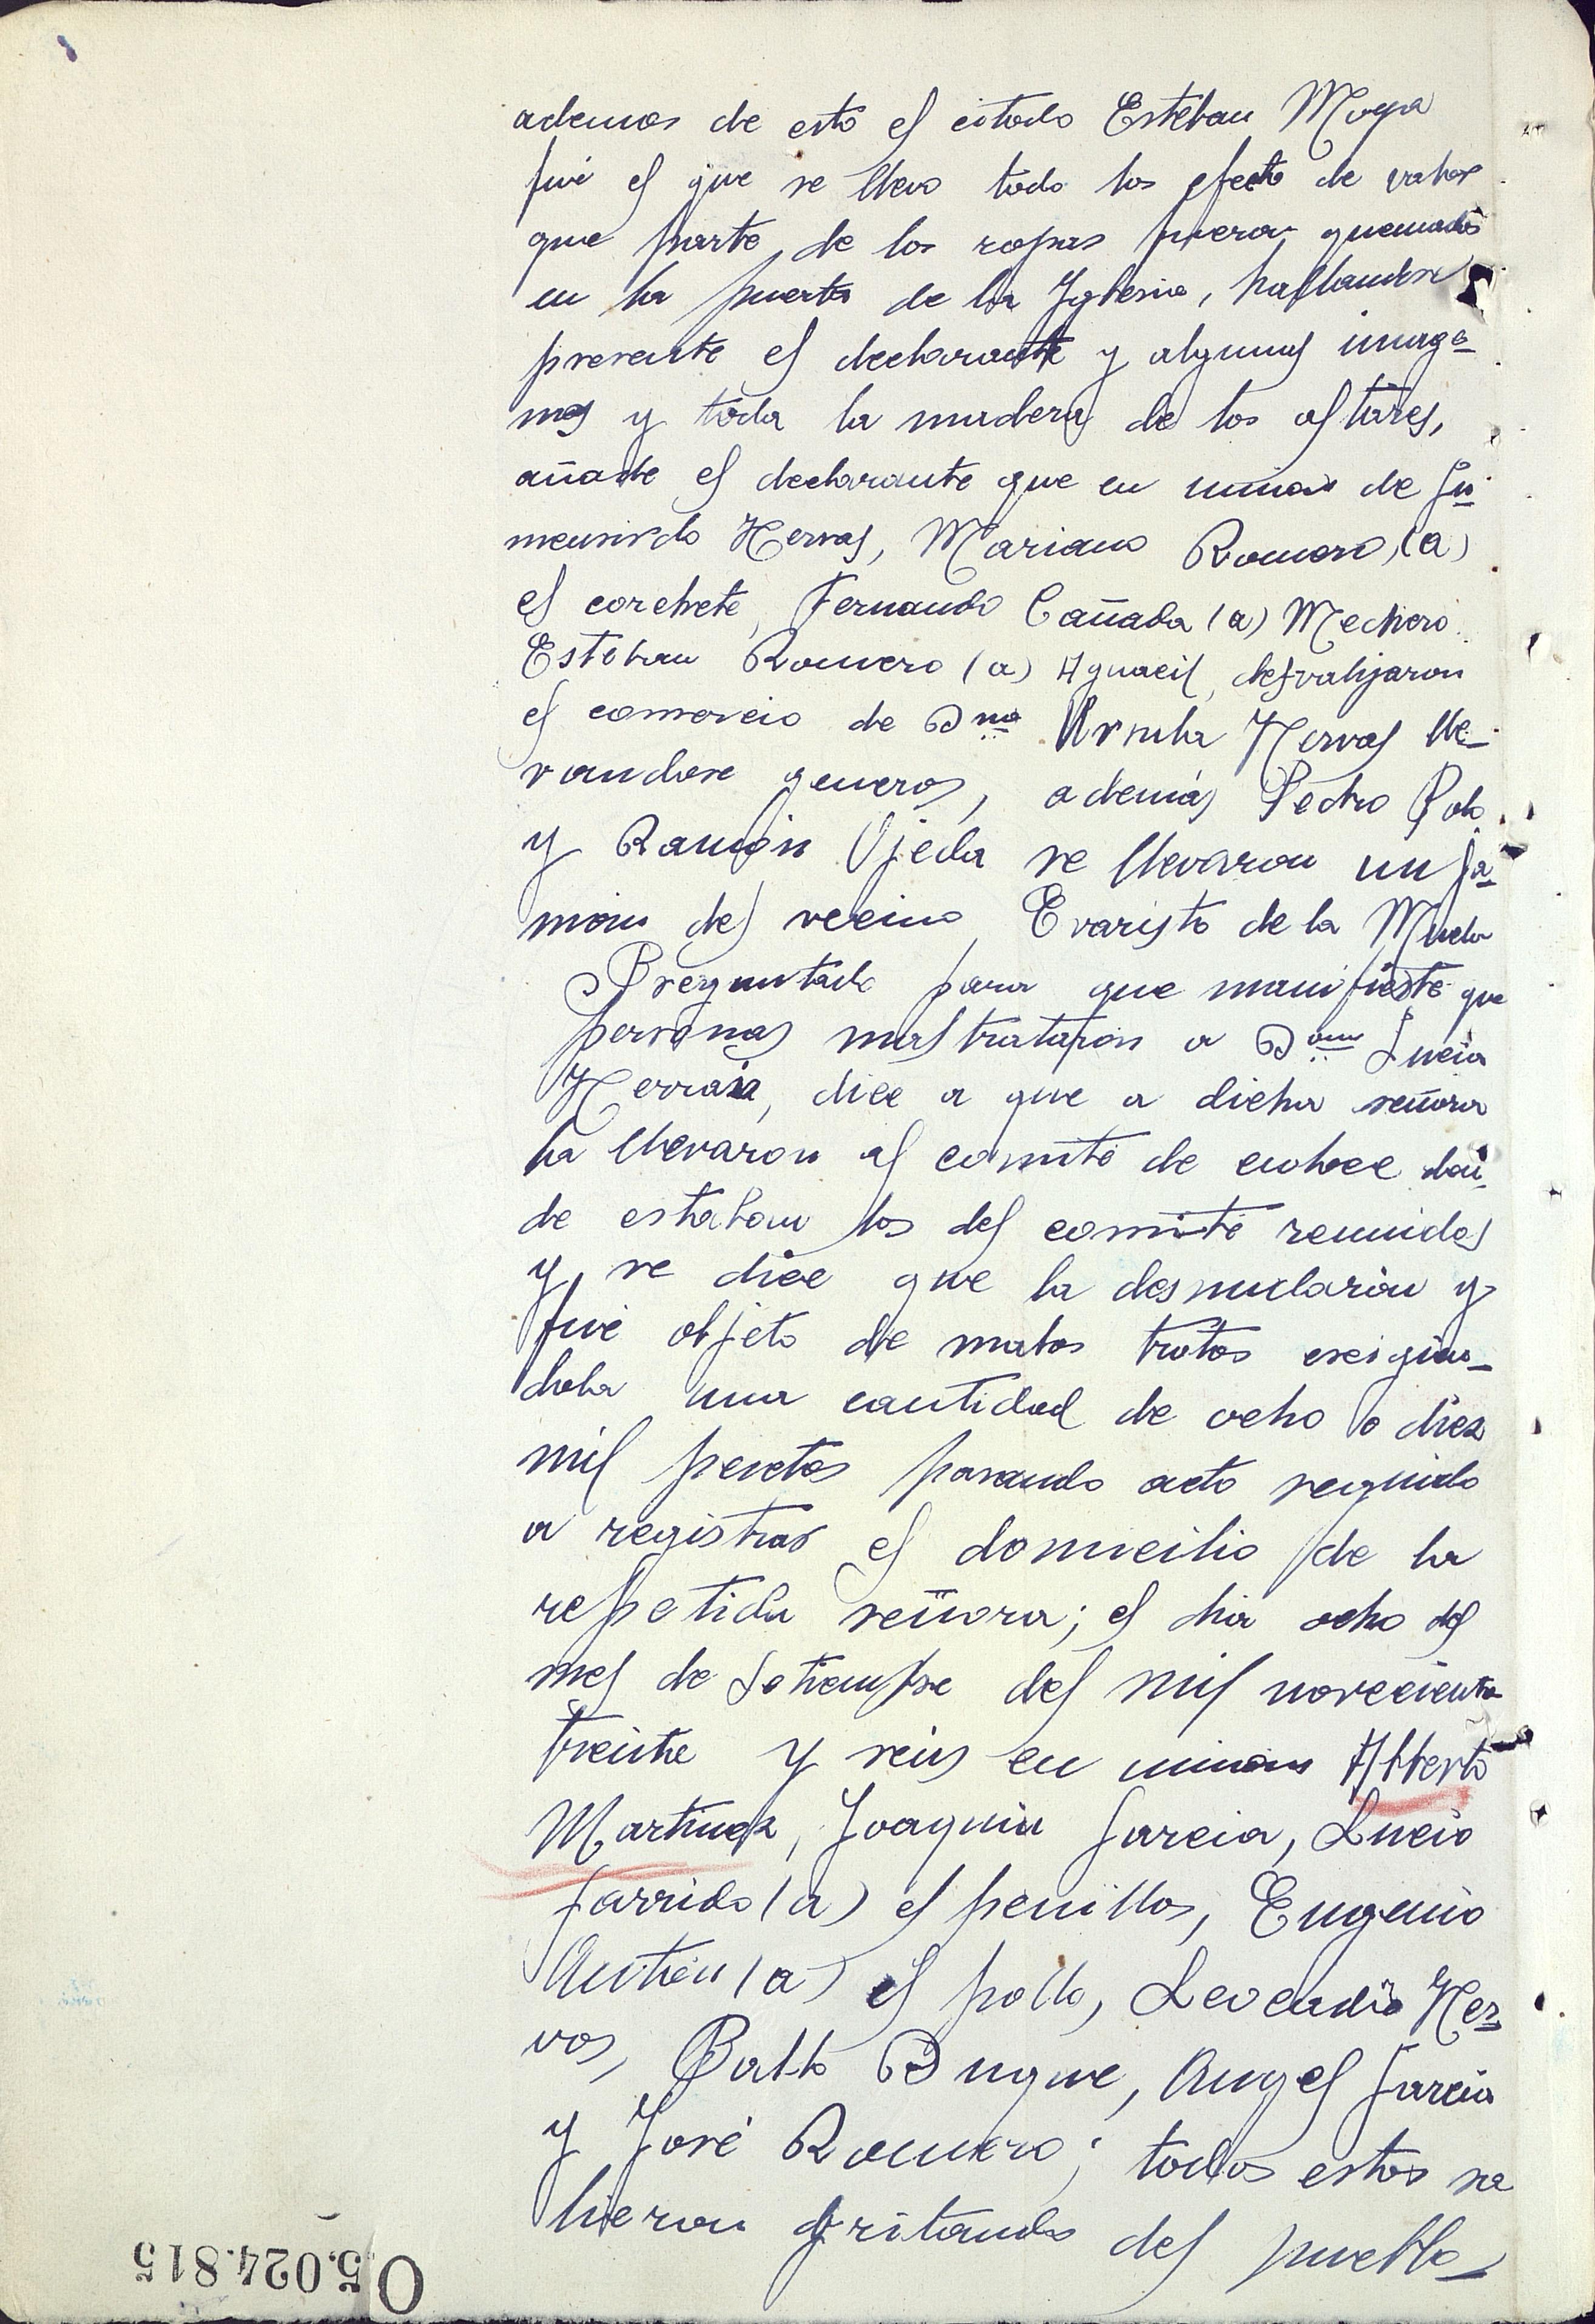 ademas de esto el citado Esteban Moya
fué el que se llevo todo los efecto de valor
que parte de las ropas fueron quemadas
en la puerta de la Yglesia, hallandose
presente el declarante y algunas image-
nes y toda la madera de los altares,
añade el declarante que en union de Gu-
mensindo Hervas, Mariano Romero, (a)
el corchete, Fernando Cañada (a) Mechero
Esteban Romero (a) Aguacil, desvalijaron
el comercio de Dña Ursula Hervas lle-
vandose generos, además Pedro Polo
y Ramón Ojeda se llevaron un ja-
món del vecino Evaristo de la Muela
Preguntado para que manifieste que
personas maltrataron a Dña Lucia
Herraiz, dice a que a dicha señora
la llevaron al comité de enlace don-
de estaban los del comité reunidos
y se dice que la desnudarón y
fué objeto de malos tratos exigien-
dola una cantidad de ocho o diez
mil pesetas pasando acto seguido
a registrar el domicilio de la
repetida señora; el dia ocho del
mes de Setiembre del mil novecientos
treinta y seis en union Alberto
Martinez, Joaquin Garcia, Lucio
Garrido (a) el penillas, Eugenio
(a) el pollo, Leocadio Her-
vas, Duque, Angel Garcia
y José Romero; todos estos sa
lieron gritando del pueblo
O5.024.815